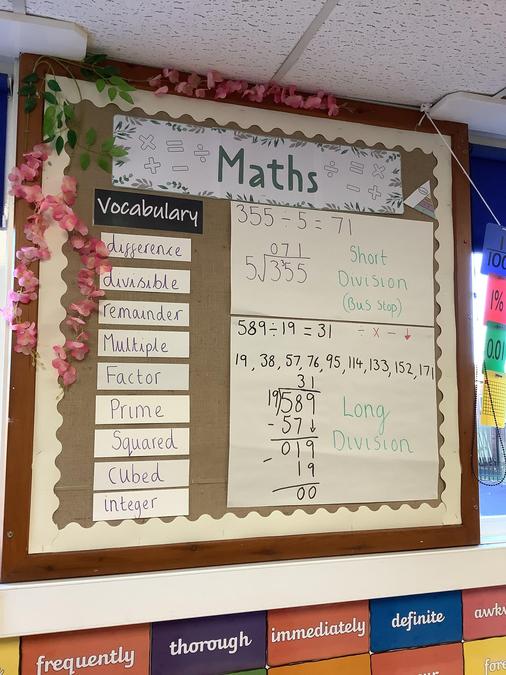 Maths
Vocabulary
difference
divisible
remainder
Multiple
Factor
Prime
Squared
Cubed
integer
355 ÷ 5 = 71
071
5√3³55
Short
Division
(Bus Stop)
589 ÷ 19 = 31
÷ × − ↓
19, 38, 57, 76, 95, 114, 133, 152, 171
31
19)589
- 57↓
019
- 19
00
Long
Division
1
100
1%
0.01
frequently
thorough
immediately
definite